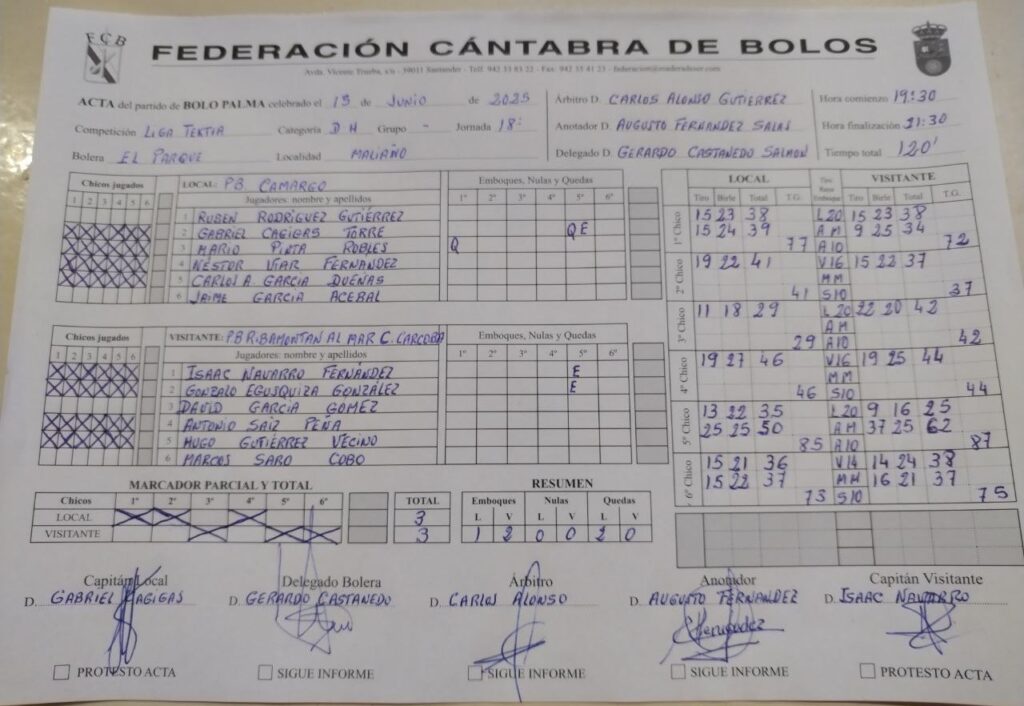 FCB
FEDERACIÓN CÁNTABRA DE BOLOS
Avda. Vicente Trueba, s/n - 39011 Santander - Telf. 942 33 83 22 - Fax. 942 35 41 23
ACTA del partido de BOLO PALMA celebrado el 13 de JUNIO de 2025
Competición LIGA TEXTIA Categoría DH Grupo - Jornada 18ª
Bolera EL PARQUE Localidad MALIAÑO
Árbitro D. CARLOS ALONSO GUTIERREZ
Anotador D. AUGUSTO FERNANDEZ SALAS
Delegado D. GERARDO CASTANEDO SALMON
Hora comienzo 19:30
Hora finalización 21:30
Tiempo total 120'
Chicos jugados
1 2 3 4 5 6
LOCAL: PB. CAMARGO
Jugadores: nombre y apellidos
Emboques, Nulas y Quedas
1º 2º 3º 4º 5º 6º
1 RUBEN RODRÍGUEZ GUTIÉRREZ
2 GABRIEL CAGIGAS TORRE QE
3 MARIO PINTA ROBLES Q
4 NÉSTOR VIAR FERNANDEZ
5 CARLOS A. GARCIA DUEÑAS
6 JAIME GARCIA ACEBAL
Chicos jugados
1 2 3 4 5 6
VISITANTE: PB RIBAMONTAN AL MAR C. CARCOBA
Jugadores: nombre y apellidos
Emboques, Nulas y Quedas
1º 2º 3º 4º 5º 6º
1 ISAAC NAVARRO FERNANDEZ E
2 GONZALO EGUSQUIZA GONZÁLEZ E
3 DAVID GARCIA GOMEZ
4 ANTONIO SAIZ PEÑA
5 HUGO GUTIÉRREZ VECINO
6 MARCOS SARO COBO
LOCAL VISITANTE
Tiro Birle Total T.G. Tiro Raya Emboque Tiro Birle Total T.G.
1er Chico 15 23 38 L20 15 23 38
15 24 39 AM 9 25 34
77 A10 72
2º Chico 19 22 41 V16 15 22 37
MM
41 S10 37
3er Chico 11 18 29 L20 22 20 42
AM
29 A10 42
4º Chico 19 27 46 V16 19 25 44
MM
46 S10 44
5º Chico 13 22 35 L20 9 16 25
25 25 50 AM 37 25 62
85 A10 87
6º Chico 15 21 36 V14 14 24 38
15 22 37 MM 16 21 37
73 S10 75
MARCADOR PARCIAL Y TOTAL
Chicos 1º 2º 3º 4º 5º 6º TOTAL
LOCAL 3
VISITANTE 3
RESUMEN
Emboques Nulas Quedas
L V L V L V
1 2 0 0 2 0
Capitán Local
D. GABRIEL CAGIGAS
Delegado Bolera
D. GERARDO CASTANEDO
Árbitro
D. CARLOS ALONSO
Anotador
D. AUGUSTO FERNANDEZ
Capitán Visitante
D. ISAAC NAVARRO
PROTESTO ACTA
SIGUE INFORME
SIGUE INFORME
SIGUE INFORME
PROTESTO ACTA